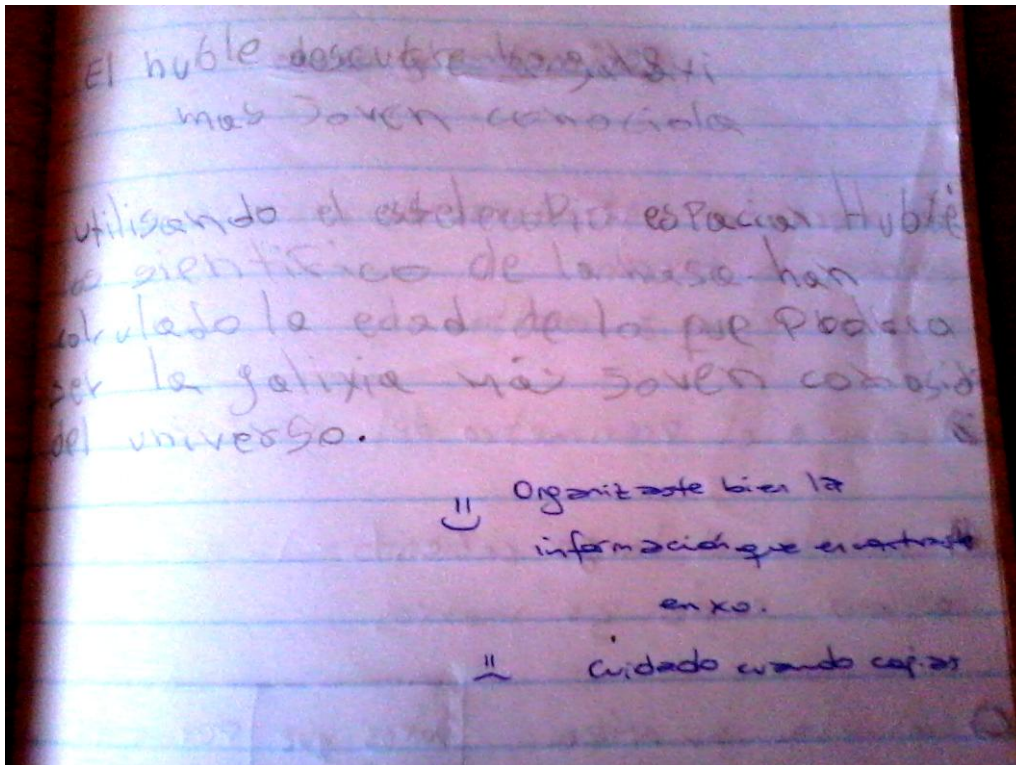 El huble descubre
mas Joven conocida
utilisando el esstelescopio espaciar Huble
sientifico de la nasa han
calculado la edad de lo que Podria
ser la galixia más Joven conosid
del universo.
Organizaste bien la
información que encontraste
en xo.
cuidado cuando copias